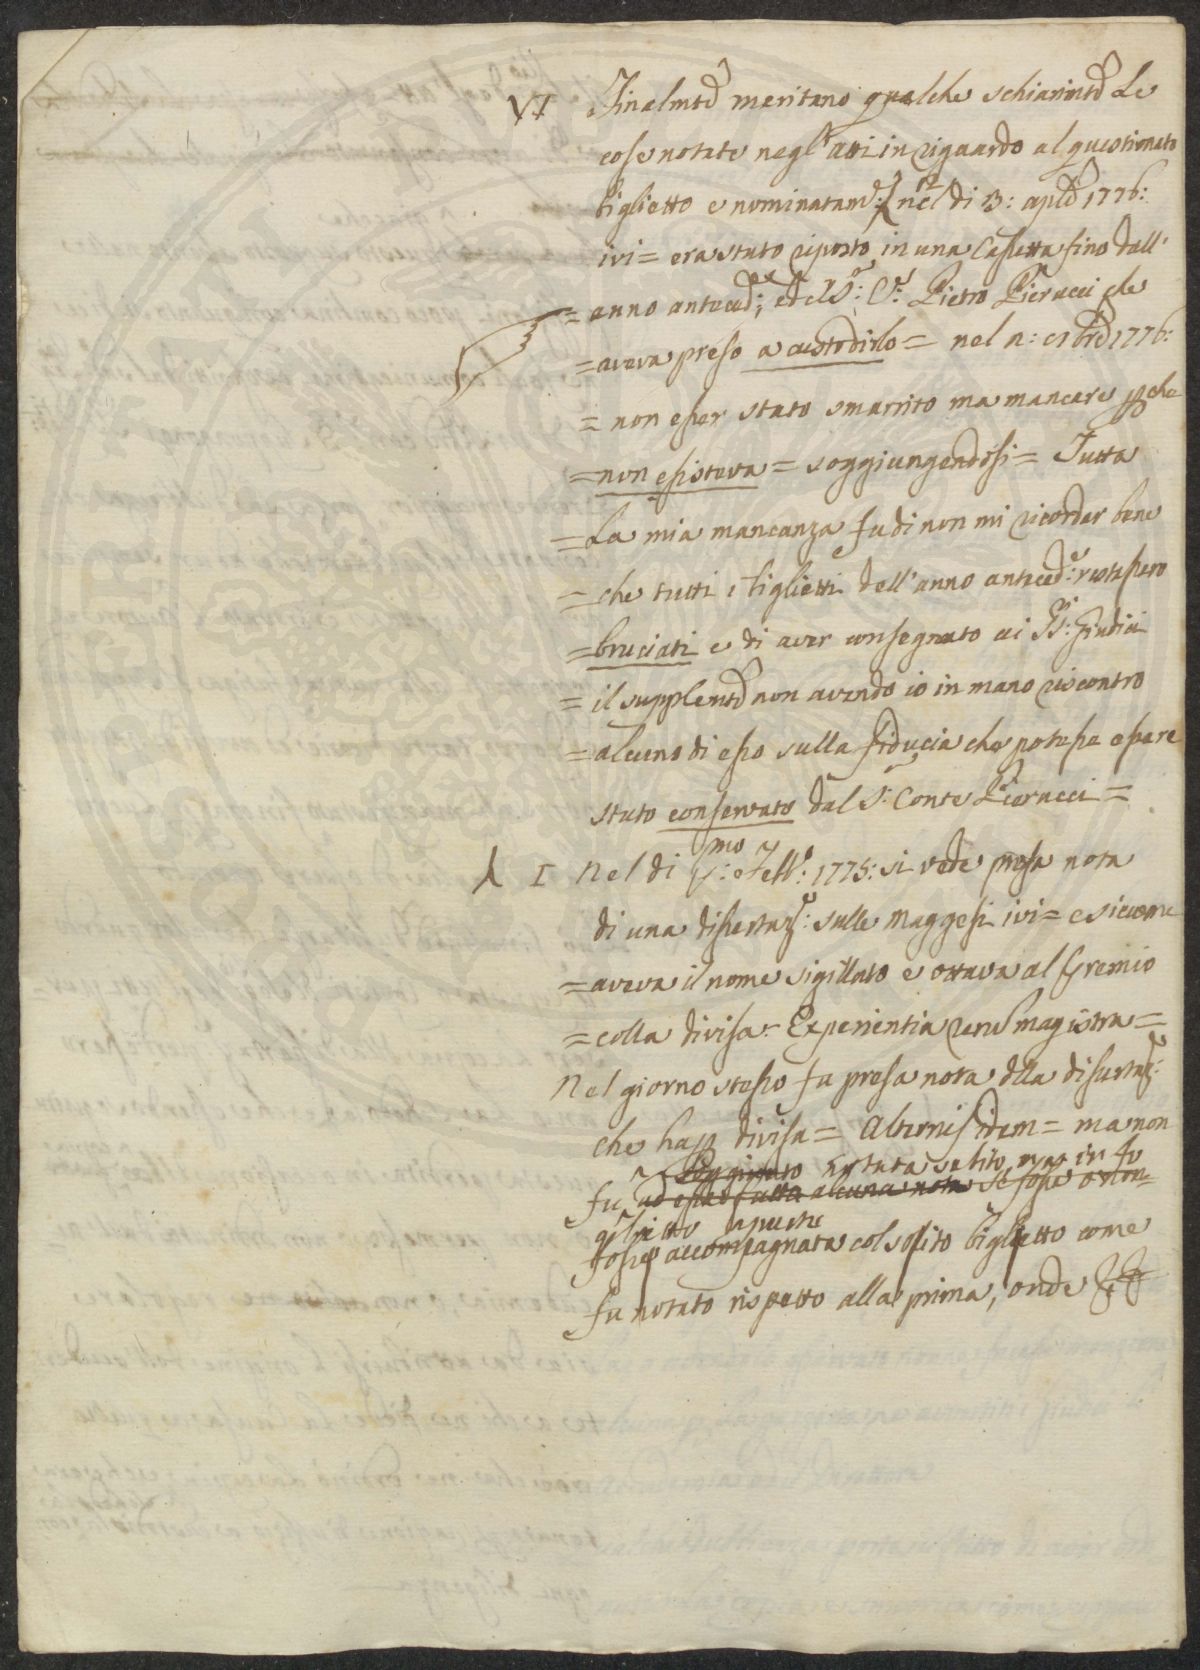 VI Finalmte meritano qualche schiarimto Le
cose notate negl'atti in riguardo al questionato
biglietto e nominatame: nel dì 3: aple 1776:
ivi = era stato riposto in una Casetta fino dall'
= anno anteced:e, ed il Sr: Cte: Pietro Pierucci che
= aveva preso a custodirlo = nel 1776:
= non esser stato smarrito ma mancare pche
= non esisteva = soggiungendosi = Tutta
= La mia mancanza fu di non mi ricordar bene
= che tutti i biglietti dell'anno anteced:e restassero
= bruciati e di aver consegnato ai SS:ri Giudici
= il supplemto non avendo io in mano riscontro
= alcuno di esso sulla fiducia che potesse essere
stato conservato dal Sr: Conte Pierucci =
I Nel dì pmo: 1775: si vede presa nota
di una dissertaze: sulle Maggesi ivi = e siccome
= aveva il nome sigillato e ottava al Premio
= colla divisa = Experientia rerum magistra =
Nel giorno stesso fu presa nota dlla dissertaze:
che ha p divisa = Alternis idem = ma non
fu ad essa fatta alcuna nota se fosse o non
fosse accompagnata col solito biglietto come
fu notato rispetto alla prima, onde